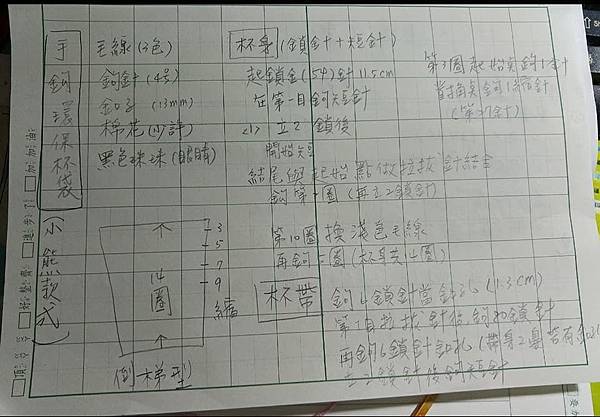 手鉤環保杯袋
(小熊款式)
毛線(2色)
鉤針(4号)
釦子(13mm)
棉花(少許)
黑色珠珠(眼睛)
14圈
3
5
7
9
縮
倒梯型
杯身(鎖針+短針)
起鎖金(54)針11.5cm
在第一目鉤短針
<1> 立2鎖後
開始短
結尾與起始點做拉拔針結合
鉤第一圈(再立2鎖針)
第10圈換淺色毛線
再鉤一圈(杯身共14圈)
第3圈起始
首
杯帶
鉤6鎖針當釦孔(1.3cm)
第1目拉拔針後鉤30鎖針
再鉤6鎖針釦孔
立2鎖針後鉤短針